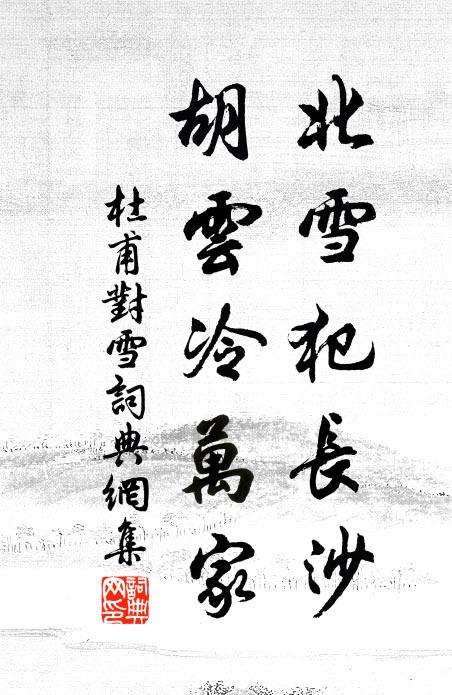 北雪犯長沙
胡雲冷萬家
杜甫對雪詞典網集
詞典
网印